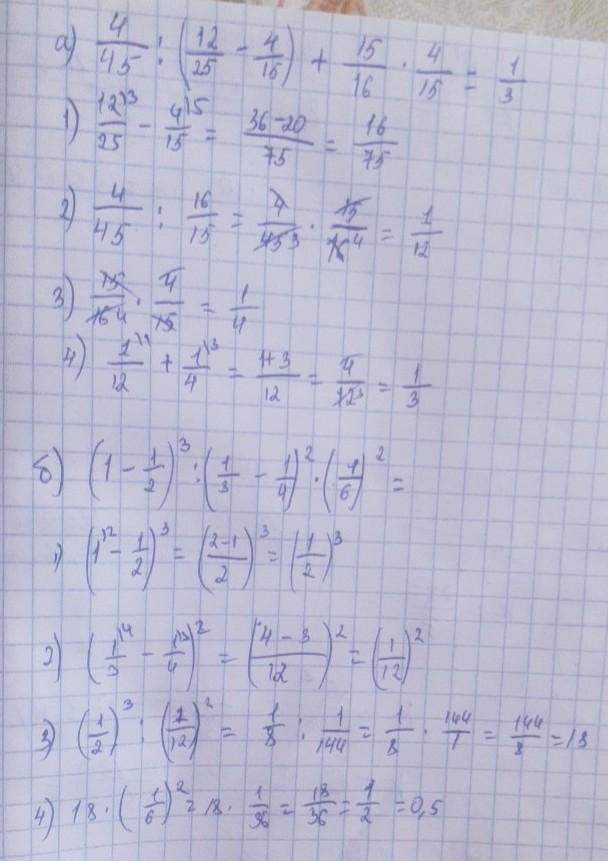 а) 4/45 : (12/25 - 4/15) + 15/16 · 4/15 = 1/3
1) 12\3/25 - 4\5/15 = 36-20/75 = 16/75
2) 4/45 : 16/15 = 4/45 3 · 15/16 4 = 1/12
3) 15/16 4 · 4/15 = 1/4
4) 1\1/12 + 1\3/4 = 1+3/12 = 4/12 3 = 1/3
б) (1 - 1/2)³ : (1/3 - 1/4)² · (1/6)² =
1) (1\2 - 1/2)³ = (2-1/2)³ = (1/2)³
2) (1\4/3 - 1\3/4)² = (4-3/12)² = (1/12)²
3) (1/2)³ : (1/12)² = 1/8 : 1/144 = 1/8 · 144/1 = 144/8 = 18
4) 18 · (1/6)² = 18 · 1/36 = 18/36 = 1/2 = 0,5